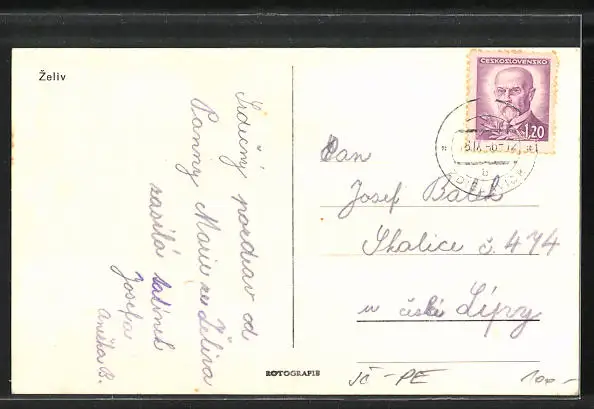 Želiv
Srdečný pozdrav od
Panny Marie ze Želiva
zasílá tatínek
Josefa
Anežka B.
ČESKOSLOVENSKO
1.20
Pan
Josef Bálek
Skalice č. 474
u české Lípy
ROTOGRAFIE
JČ - PE
100,-